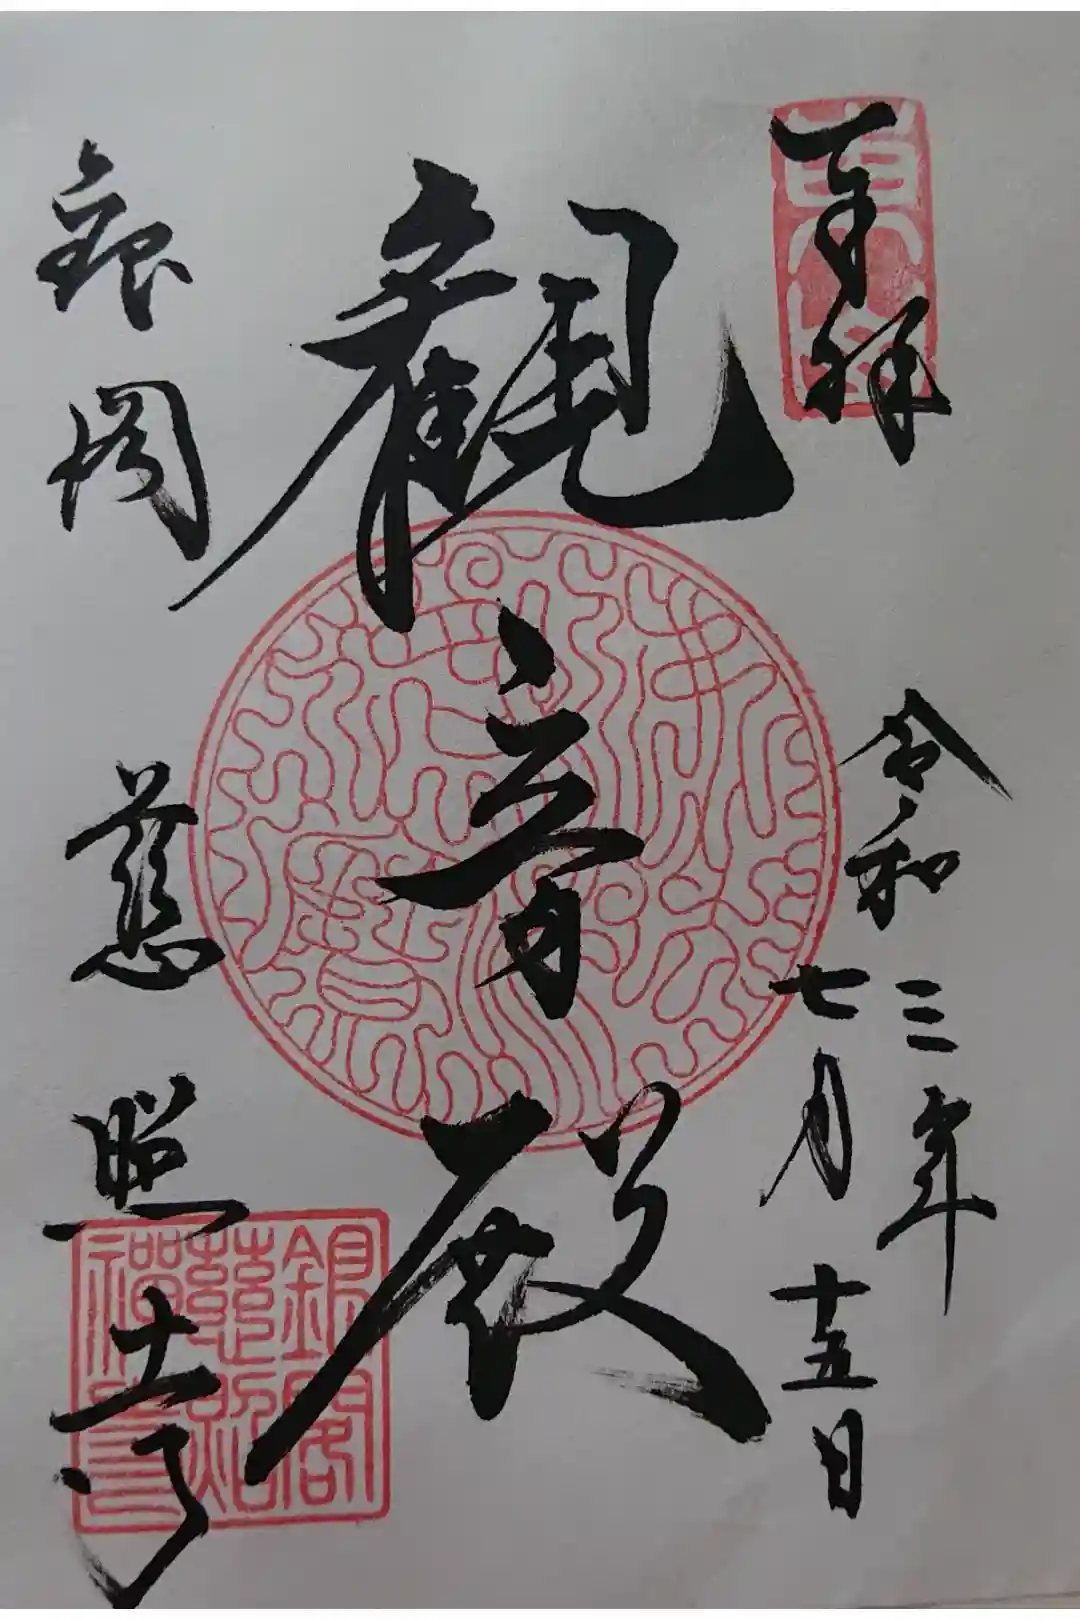 奉拝
令和三年
七月十五日
観音殿
銀閣
慈照寺
東山
銀閣
慈照
禅寺